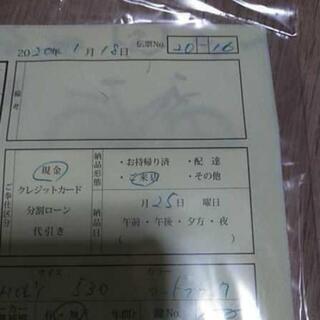 2020年1月18日 伝票No. 20-16
備考
ご奉仕区分
現金
クレジットカード
分割ローン
代引き
納品形態
・お持帰り済 ・配達
・ご来店 ・その他
納品日
月25日 曜日
午前・午後・夕方・夜
( )
サイズ
カラー
530